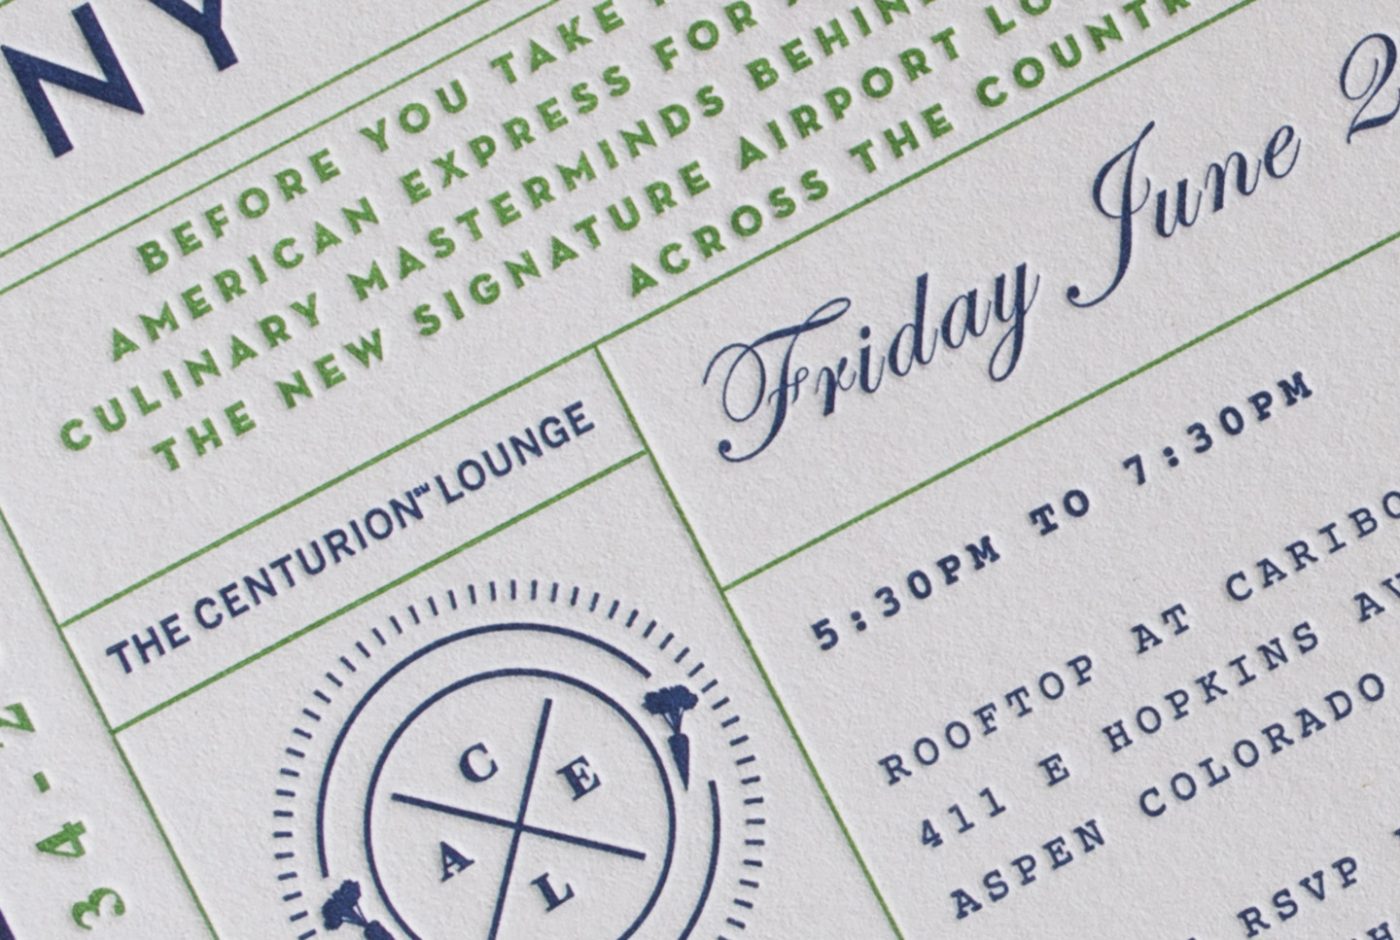 NY
BEFORE YOU TAKE
AMERICAN EXPRESS FOR
CULINARY MASTERMINDS BEHIND
THE NEW SIGNATURE AIRPORT LO
ACROSS THE COUNTR
Friday June 2
THE CENTURION℠ LOUNGE
5:30PM TO 7:30PM
ROOFTOP AT CARIBO
411 E HOPKINS AV
ASPEN COLORADO
RSVP
C E
A L
34-2